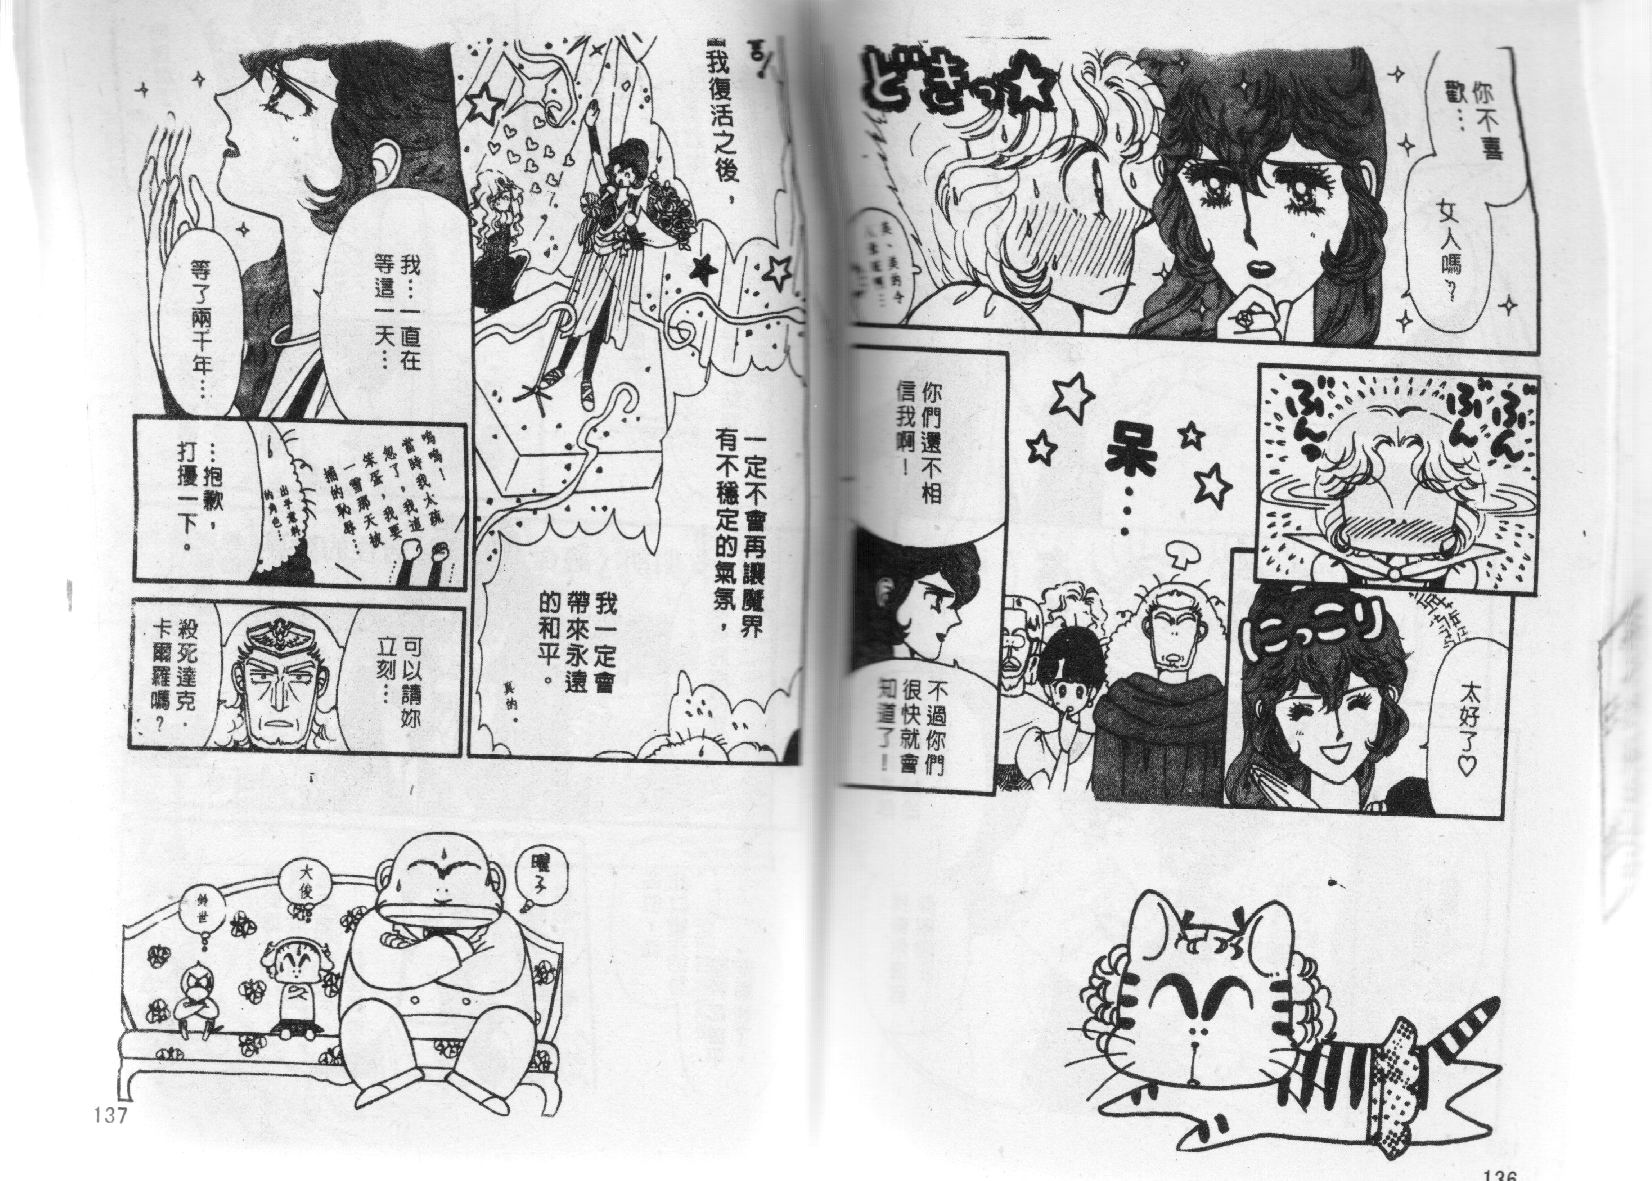 どきっ
你不喜
歡…
女人嗎?
ぶん
ぶん
ぶんっ
にっこり
太好了♡
呆……
你們還不相
信我啊!
不過你們
很快就會
知道了!
136
我復活之後,
一定不會再讓魔界
有不穩定的氣氛,
我一定會
帶來永遠
的和平。
真的。
我…一直在
等這一天…
等了兩千年…
嗚嗚!
當時我太疏
忽了,我這
笨蛋,我要
一雪那天被
捕的恥辱…
出乎意料
的角色…
…抱歉,
打擾一下。
可以請妳
立刻…
殺死達克·
卡爾羅嗎?
曜子
大俊
鈴世
137